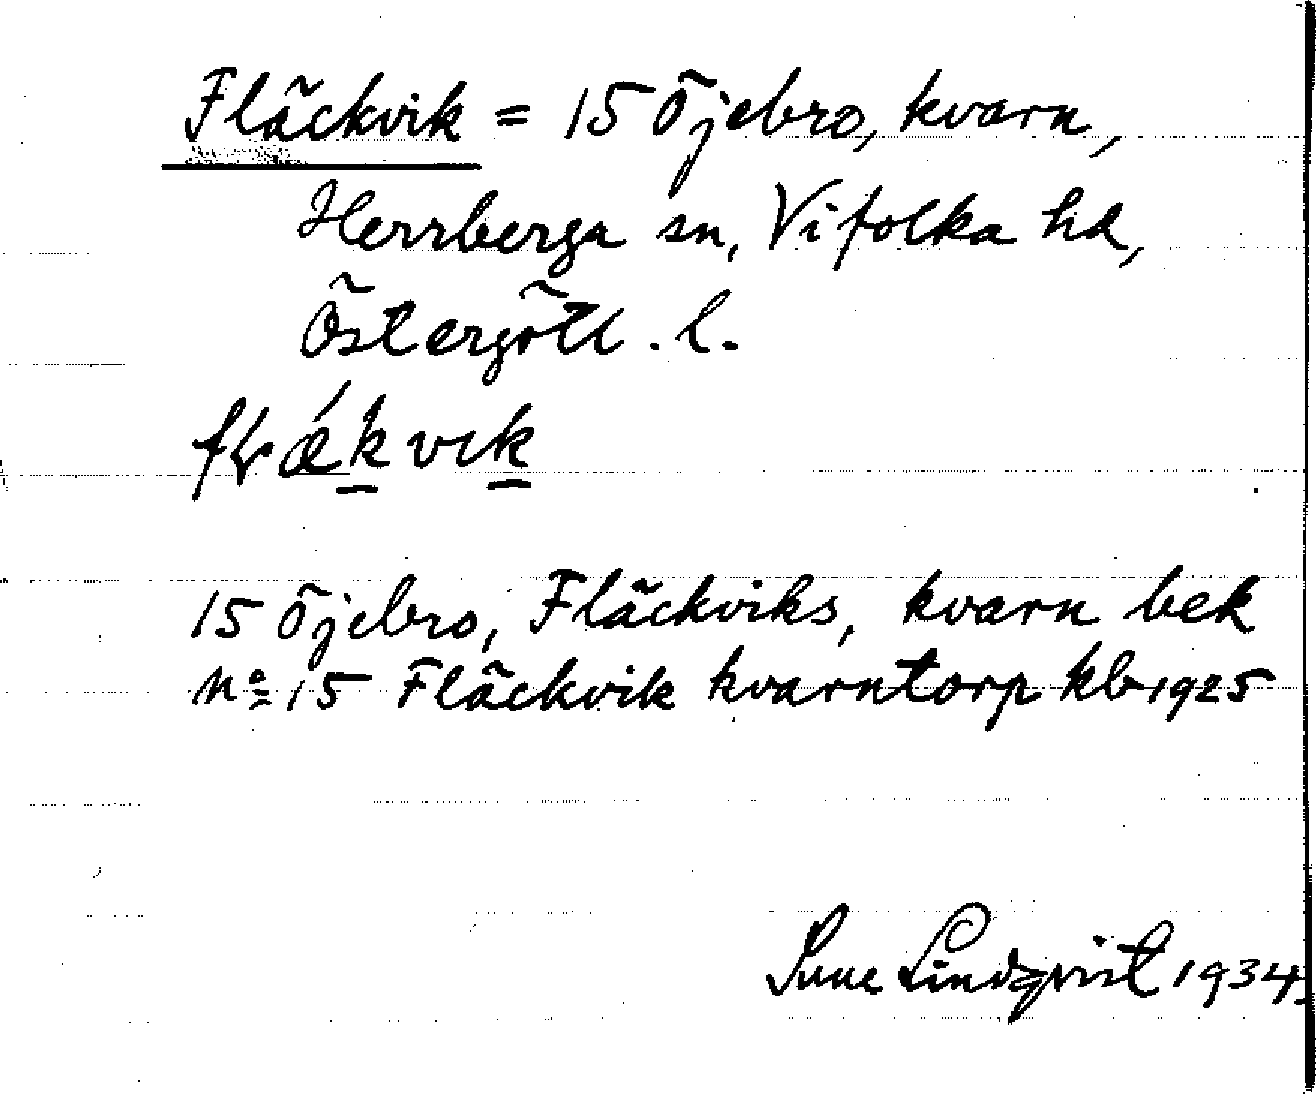 Fläckvik = 15 Öjebro, kvarn,
Herrberga sn, Vifolka hd,
Östergötl. l.
15 Öjebro, Fläckviks, kvarn bek
No 15 Fläckvik kvarntorp kb 1925
Sune Lindqvist 1934